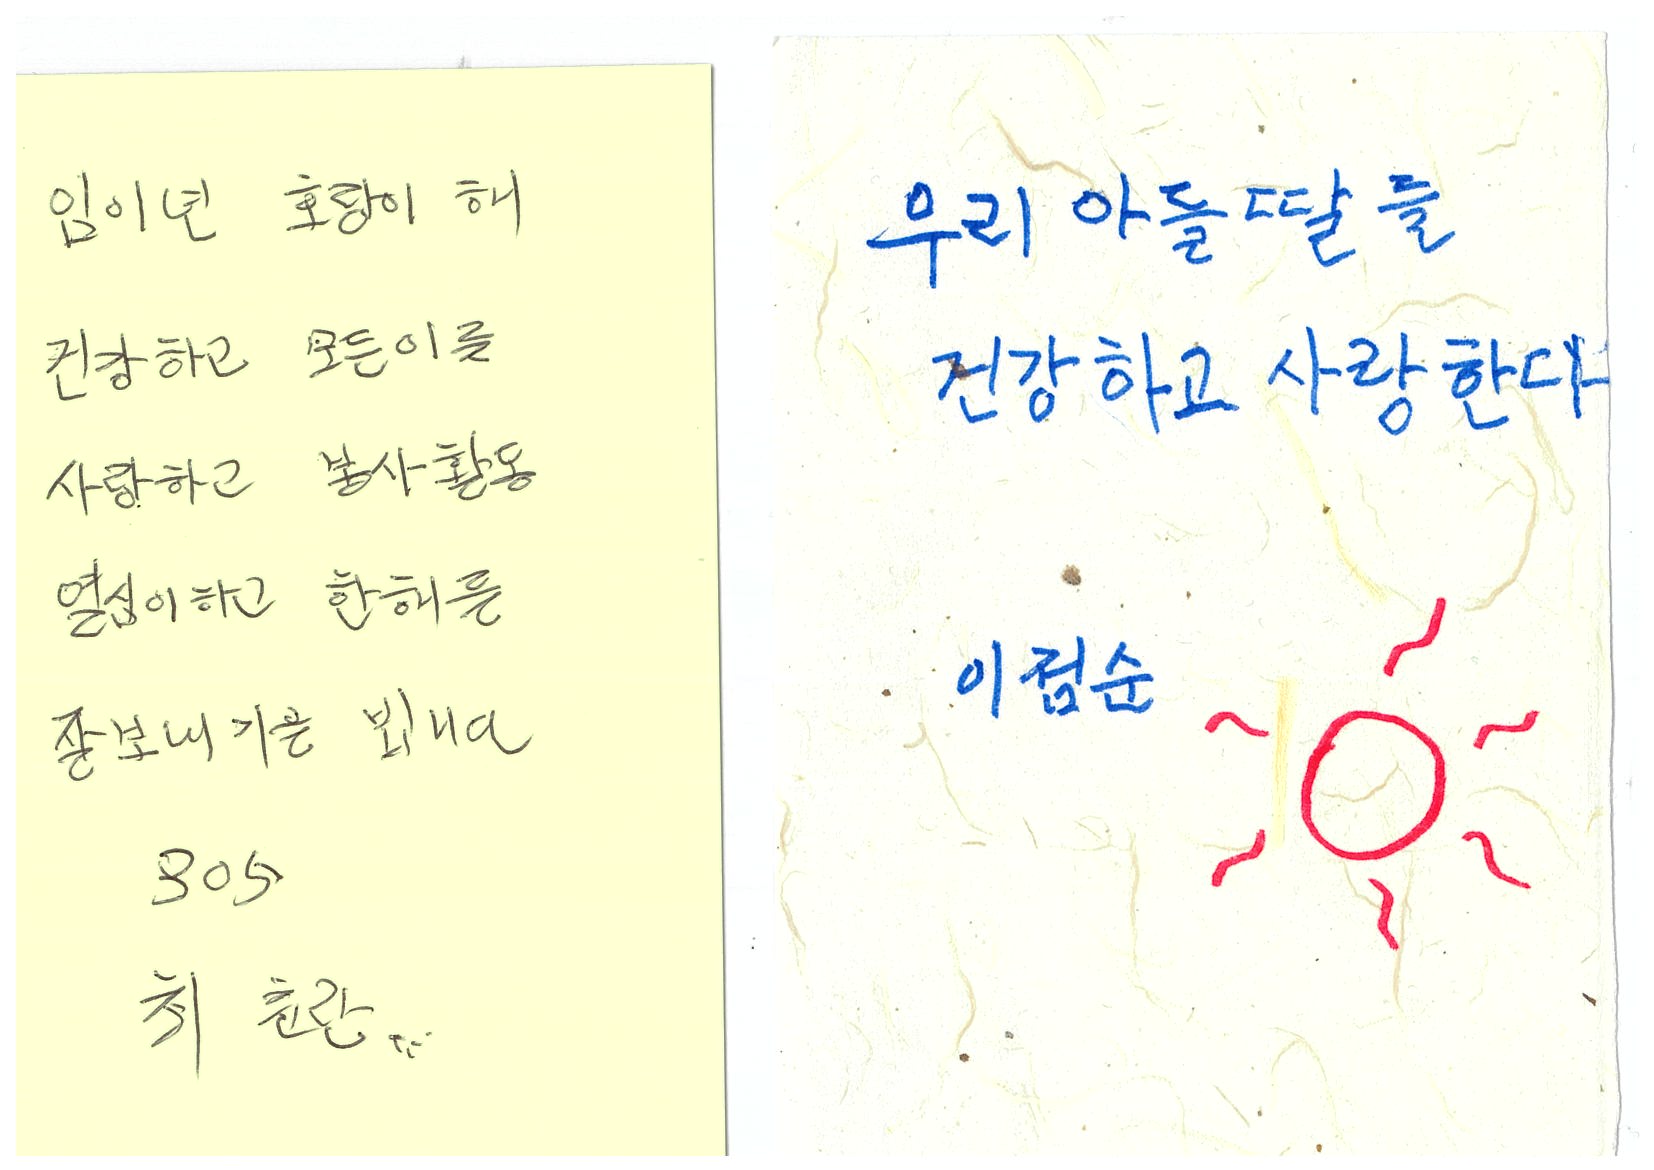 임이년 호랑이 해
건강하고 모든이를
사랑하고 봉사활동
열심이하고 한해를
잘보내기을 빕니다
305
최 춘란
우리 아들 딸 들
건강하고 사랑한다
이점순